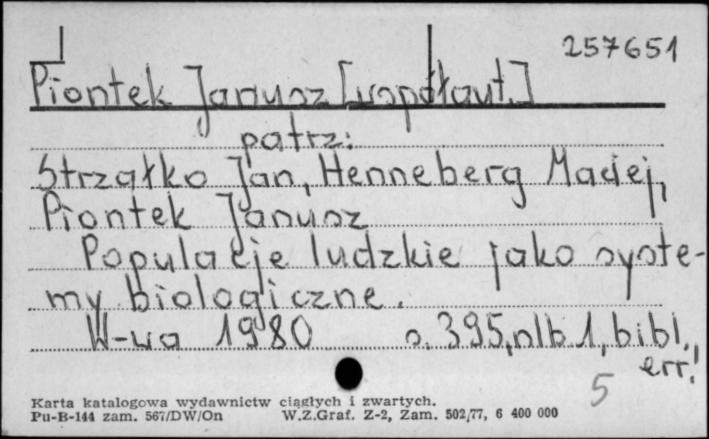 257651
Piontek Janusz [współaut.]
patrz:
Strzałko Jan, Henneberg Maciej,
Piontek Janusz
Populacje ludzkie jako syste-
my biologiczne.
W-wa 1980 s. 395, nlb 1, bibl.,
err!
5
Karta katalogowa wydawnictw ciągłych i zwartych.
Pu-B-144 zam. 567/DW/On W.Z.Graf. Z-2, Zam. 502/77, 6 400 000